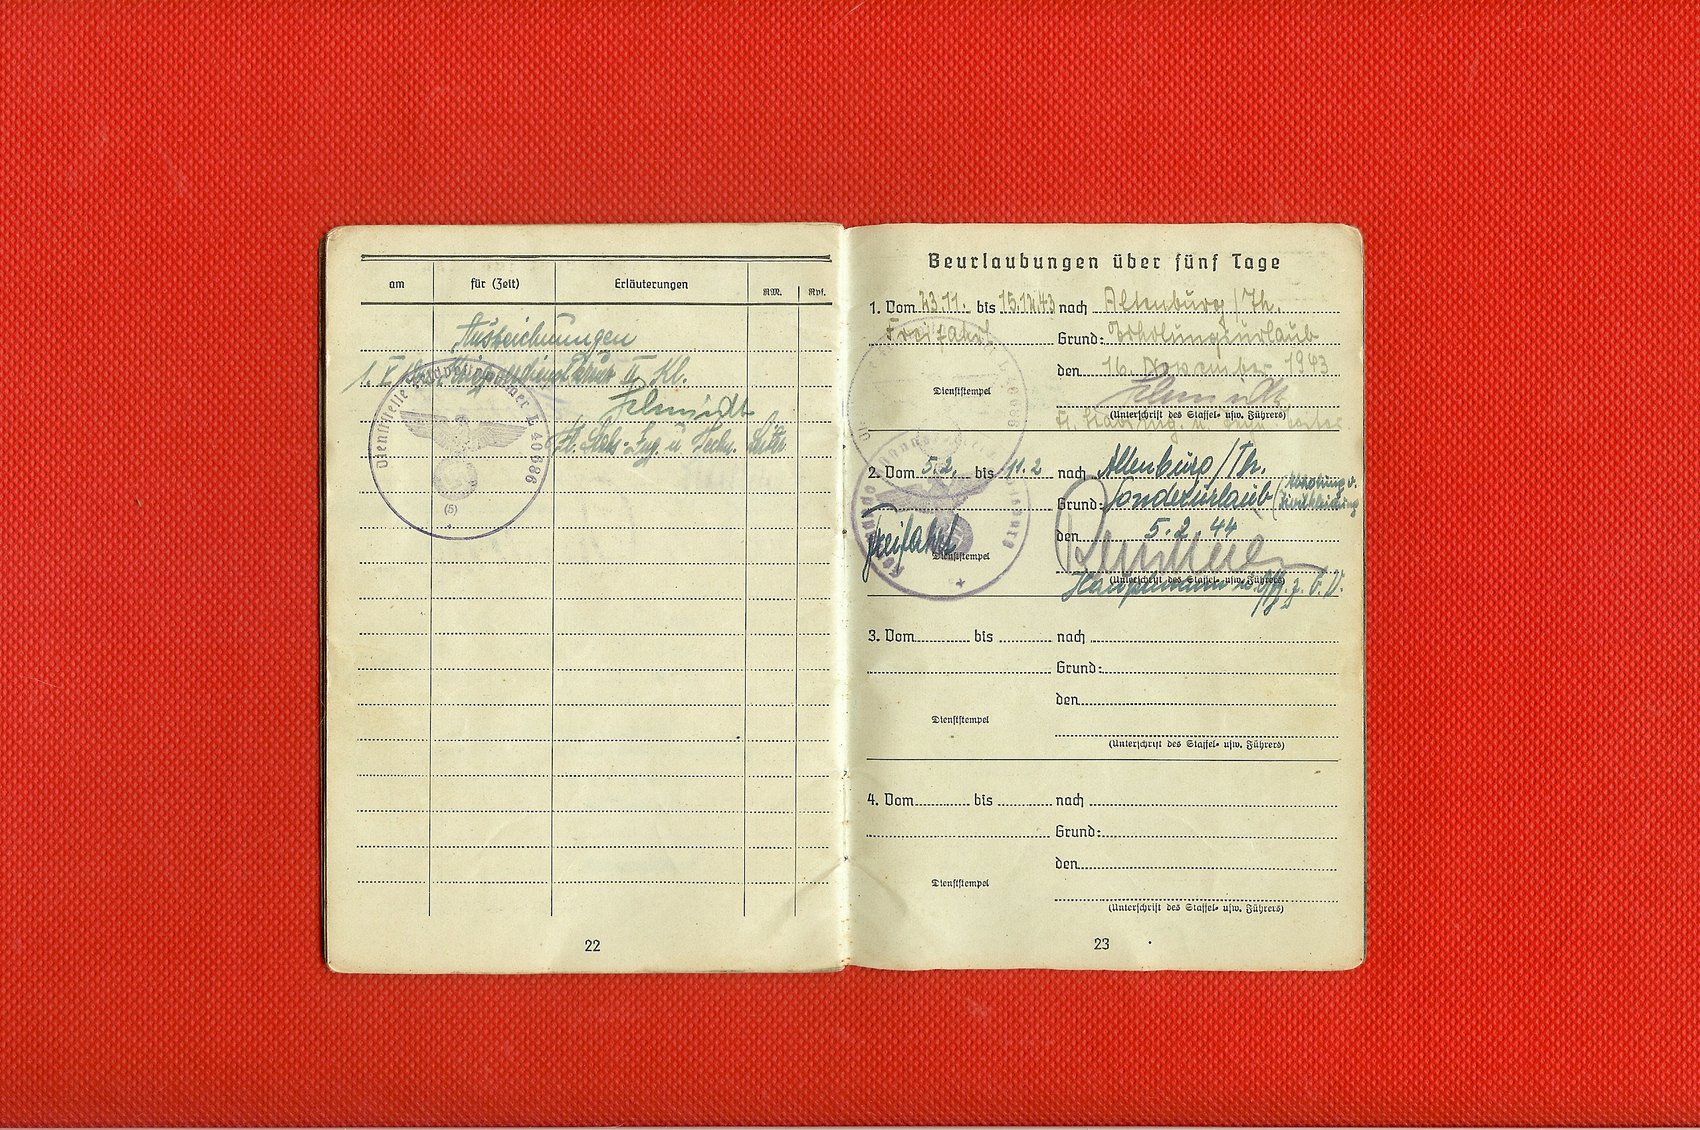 am für (Zeit) Erläuterungen RM. Rpf.
Auszeichnungen
II. Kl.
Schmidt
Dienststelle Feldpostnummer L 40686
(5)
22
Beurlaubungen über fünf Tage
1. Vom 23.11. bis 15.12.43 nach Altenburg/Th.
Freifahrt Grund: Erholungsurlaub
den 16. November 1943
Dienststempel
Schmidt
(Unterschrift des Staffel- usw. Führers)
2. Vom 5.2. bis 11.2 nach Altenburg/Th.
Grund: Sonderurlaub (Abholung v. Zivilkleidung
den 5.2.44
Freifahrt
Dienststempel
(Unterschrift des Staffel- usw. Führers)
Hauptmann u. Offz. z. b. V.
3. Vom bis nach
Grund:
den
Dienststempel
(Unterschrift des Staffel- usw. Führers)
4. Vom bis nach
Grund:
den
Dienststempel
(Unterschrift des Staffel- usw. Führers)
23